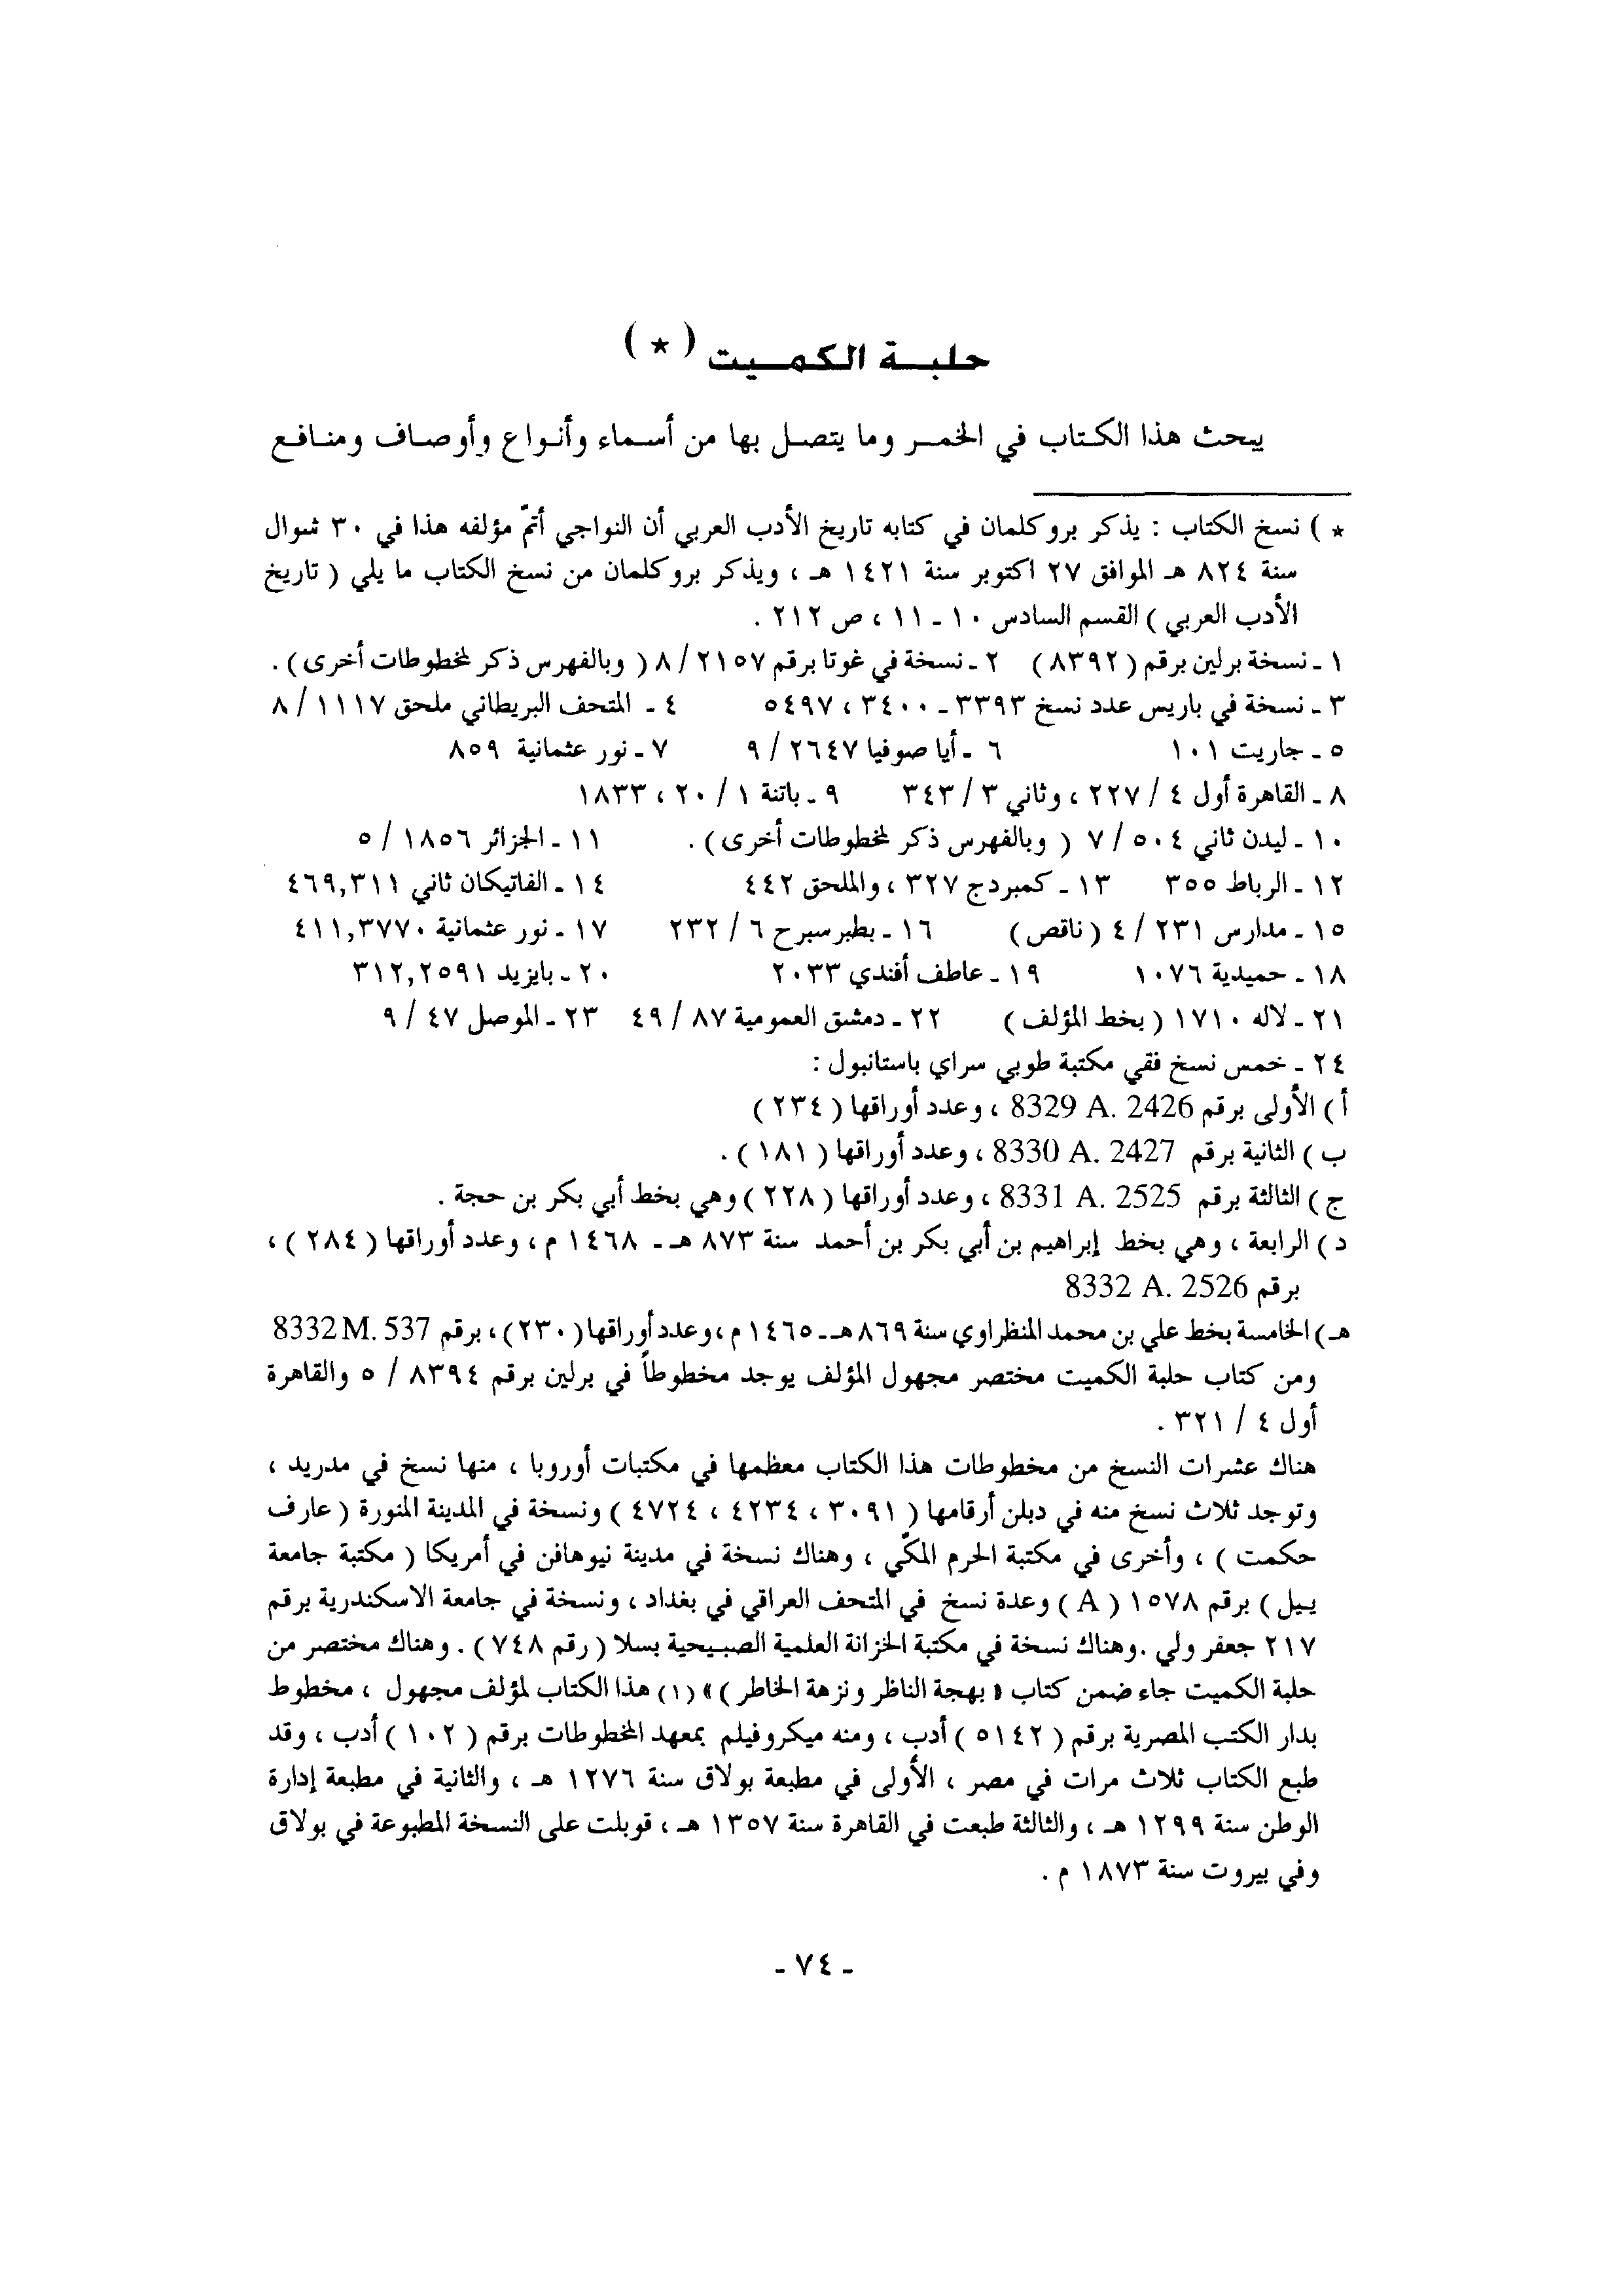 حلبة الكميت (*)
يبحث هذا الكتاب في الخمر وما يتصل بها من أسماء وأنواع وأوصاف ومنافع
* ) نسخ الكتاب : يذكر بروكلمان في كتابه تاريخ الأدب العربي أن النواجي أتمّ مؤلفه هذا في ٣٠ شوال
سنة ٨٢٤ هـ الموافق ٢٧ اكتوبر سنة ١٤٢١ هـ ، ويذكر بروكلمان من نسخ الكتاب ما يلي ( تاريخ
الأدب العربي ) القسم السادس ١٠ - ١١ ، ص ٢١٢ .
١ - نسخة برلين برقم ( ٨٣٩٢ ) ٢ - نسخة في غوتا برقم ٢١٥٧ / ٨ ( وبالفهرس ذكر لمخطوطات أخرى ) .
٣ - نسخة في باريس عدد نسخ ٣٣٩٣ - ٣٤٠٠ ، ٥٤٩٧ ٤ - المتحف البريطاني ملحق ١١١٧ / ٨
٥ - جاريت ١٠١ ٦ - أيا صوفيا ٢٦٤٧ / ٩ ٧ - نور عثمانية ٨٥٩
٨ - القاهرة أول ٤ / ٢٢٧ ، وثاني ٣ / ٣٤٣ ٩ - باتنة ١ / ٢٠ ، ١٨٣٣
١٠ - ليدن ثاني ٥٠٤ / ٧ ( وبالفهرس ذكر لمخطوطات أخرى ) . ١١ - الجزائر ١٨٥٦ / ٥
١٢ - الرباط ٣٥٥ ١٣ - كمبردج ٣٢٧ ، والملحق ٤٤٢ ١٤ - الفاتيكان ثاني ٤٦٩,٣١١
١٥ - مدارس ٢٣١ / ٤ ( ناقص ) ١٦ - بطبرسبرج ٦ / ٢٣٢ ١٧ - نور عثمانية ٤١١,٣٧٧٠
١٨ - حميدية ١٠٧٦ ١٩ - عاطف أفندي ٢٠٣٣ ٢٠ - بايزيد ٣١٢,٢٥٩١
٢١ - لاله ١٧١٠ ( بخط المؤلف ) ٢٢ - دمشق العمومية ٨٧ / ٤٩ ٢٣ - الموصل ٤٧ / ٩
٢٤ - خمس نسخ فقي مكتبة طوبي سراي باستانبول :
أ ) الأولى برقم 8329 A. 2426 ، وعدد أوراقها ( ٢٣٤ )
ب ) الثانية برقم 8330 A. 2427 ، وعدد أوراقها ( ١٨١ ) .
ج ) الثالثة برقم 8331 A. 2525 ، وعدد أوراقها ( ٢٢٨ ) وهي بخط أبي بكر بن حجة .
د ) الرابعة ، وهي بخط إبراهيم بن أبي بكر بن أحمد سنة ٨٧٣ هـ - ١٤٦٨ م ، وعدد أوراقها ( ٢٨٤ ) ،
برقم 8332 A. 2526
هـ ) الخامسة بخط علي بن محمد المنظراوي سنة ٨٦٩ هـ - ١٤٦٥ م ، وعدد أوراقها ( ٢٣٠ ) ، برقم 8332 M. 537
ومن كتاب حلبة الكميت مختصر مجهول المؤلف يوجد مخطوطاً في برلين برقم ٨٣٩٤ / ٥ والقاهرة
أول ٤ / ٣٢١ .
هناك عشرات النسخ من مخطوطات هذا الكتاب معظمها في مكتبات أوروبا ، منها نسخ في مدريد ،
وتوجد ثلاث نسخ منه في دبلن أرقامها ( ٣٠٩١ ، ٤٢٣٤ ، ٤٧٢٤ ) ونسخة في المدينة المنورة ( عارف
حكمت ) ، وأخرى في مكتبة الحرم المكّي ، وهناك نسخة في مدينة نيوهافن في أمريكا ( مكتبة جامعة
ييل ) برقم ١٥٧٨ ( A ) وعدة نسخ في المتحف العراقي في بغداد ، ونسخة في جامعة الاسكندرية برقم
٢١٧ جعفر ولي . وهناك نسخة في مكتبة الخزانة العلمية الصبيحية بسلا ( رقم ٧٤٨ ) . وهناك مختصر من
حلبة الكميت جاء ضمن كتاب « بهجة الناظر ونزهة الخاطر ) » (١) هذا الكتاب لمؤلف مجهول ، مخطوط
بدار الكتب المصرية برقم ( ٥١٤٢ ) أدب ، ومنه ميكروفيلم بمعهد المخطوطات برقم ( ١٠٢ ) أدب ، وقد
طبع الكتاب ثلاث مرات في مصر ، الأولى في مطبعة بولاق سنة ١٢٧٦ هـ ، والثانية في مطبعة إدارة
الوطن سنة ١٢٩٩ هـ ، والثالثة طبعت في القاهرة سنة ١٣٥٧ هـ ، قوبلت على النسخة المطبوعة في بولاق
وفي بيروت سنة ١٨٧٣ م .
- ٧٤ -